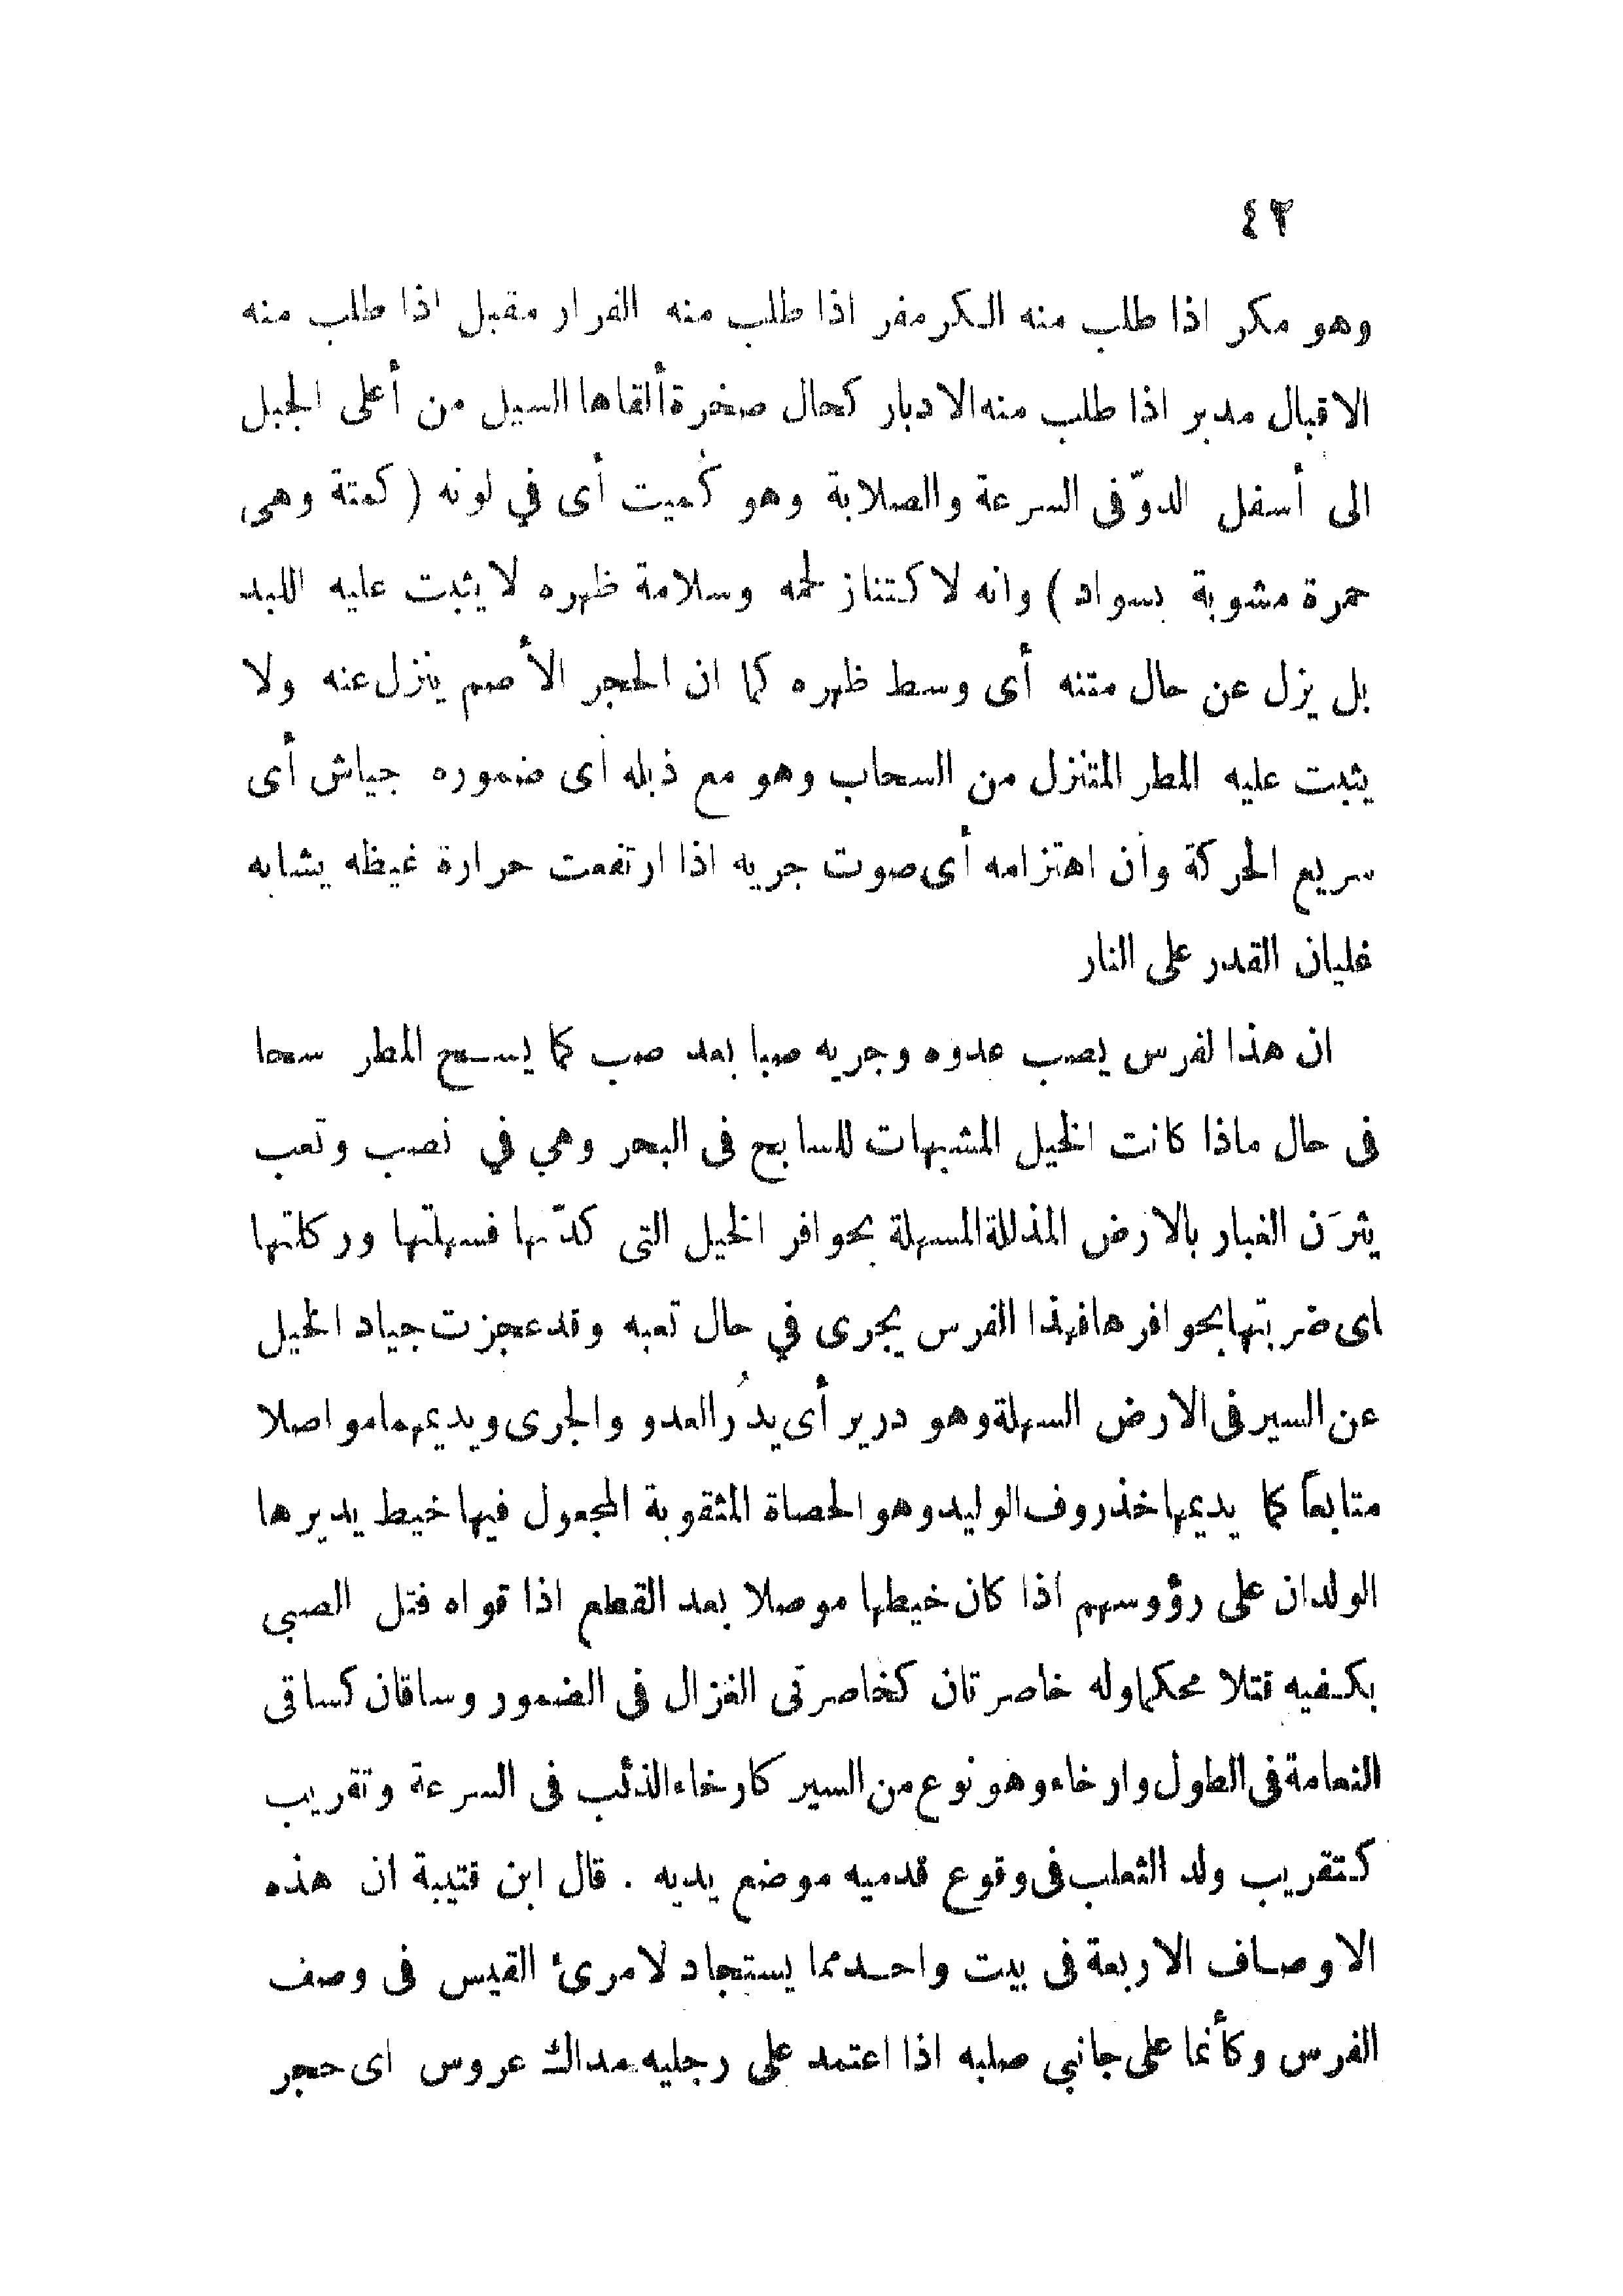 ٤٢
وهو مكر اذا طلب منه الكر مفر اذا طلب منه الفرار مقبل اذا طلب منه
الاقبال مدبر اذا طلب منه الادبار كحال صخرة ألقاها السيل من أعلى الجبل
الى أسفل الدوّ فى السرعة والصلابة وهو كُميت أى في لونه ( كمتة وهى
حمرة مشوبة بسواد ) وانه لاكتناز لحمه وسلامة ظهره لا يثبت عليه اللبد
بل يزل عن حال متنه أى وسط ظهره كما ان الحجر الأصم ينزل عنه ولا
يثبت عليه المطر المتنزل من السحاب وهو مع ذبله أى ضموره جياش أى
سريع الحركة وأن اهتزامه أى صوت جريه اذا ارتفعت حرارة غيظه يشابه
غليان القدر على النار
ان هذا لفرس يصب عدوه وجريه صبا بعد صب كما يسح المطر سحا
فى حال ماذا كانت الخيل المشبهات للسابح فى البحر وهي في نصب وتعب
يثرَن الغبار بالارض المذللة المسهلة بحوافر الخيل التى كدّتها فسهلتها وركلتها
اى ضربتها بحوافرها فهذا الفرس يجرى في حال تعبه وقد عجزت جياد الخيل
عن السير فى الارض السهلة وهو درير أى يدُر العدو والجرى ويديمهما مواصلا
متابعاً كما يديمها خذروف الوليد وهو الحصاة المثقوبة المجعول فيها خيط يديرها
الولدان على رؤوسهم اذا كان خيطها موصلا بعد القطع اذا قواه فتل الصبى
بكفيه فتلا محكما وله خاصرتان كخاصرتى الغزال فى الضمور وساقان كساقى
النعامة فى الطول وارخاء وهو نوع من السير كارخاء الذئب فى السرعة وتقريب
كتقريب ولد الثعلب فى وقوع قدميه موضع يديه . قال ابن قتيبة ان هذه
الاوصاف الاربعة فى بيت واحد مما يستجاد لامرىء القيس فى وصف
الفرس وكأنما على جانبي صلبه اذا اعتمد على رجليه مداك عروس اى حجر